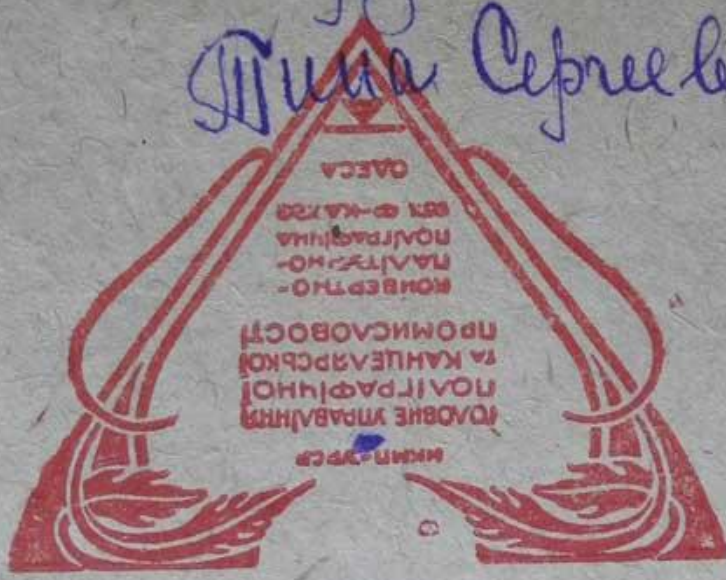 Тина Сергеев
УРСР
ГОЛОВНЕ УПРАВЛІННЯ
ПОЛІГРАФІЧНОЇ
ТА КАНЦЕЛЯРСЬКОЇ
ПРОМИСЛОВОСТІ
КОНВЕРТНО-
ПАЛІТУРНО-
ПОЛІГРАФІЧНА
Ф-КА
ОДЕСА